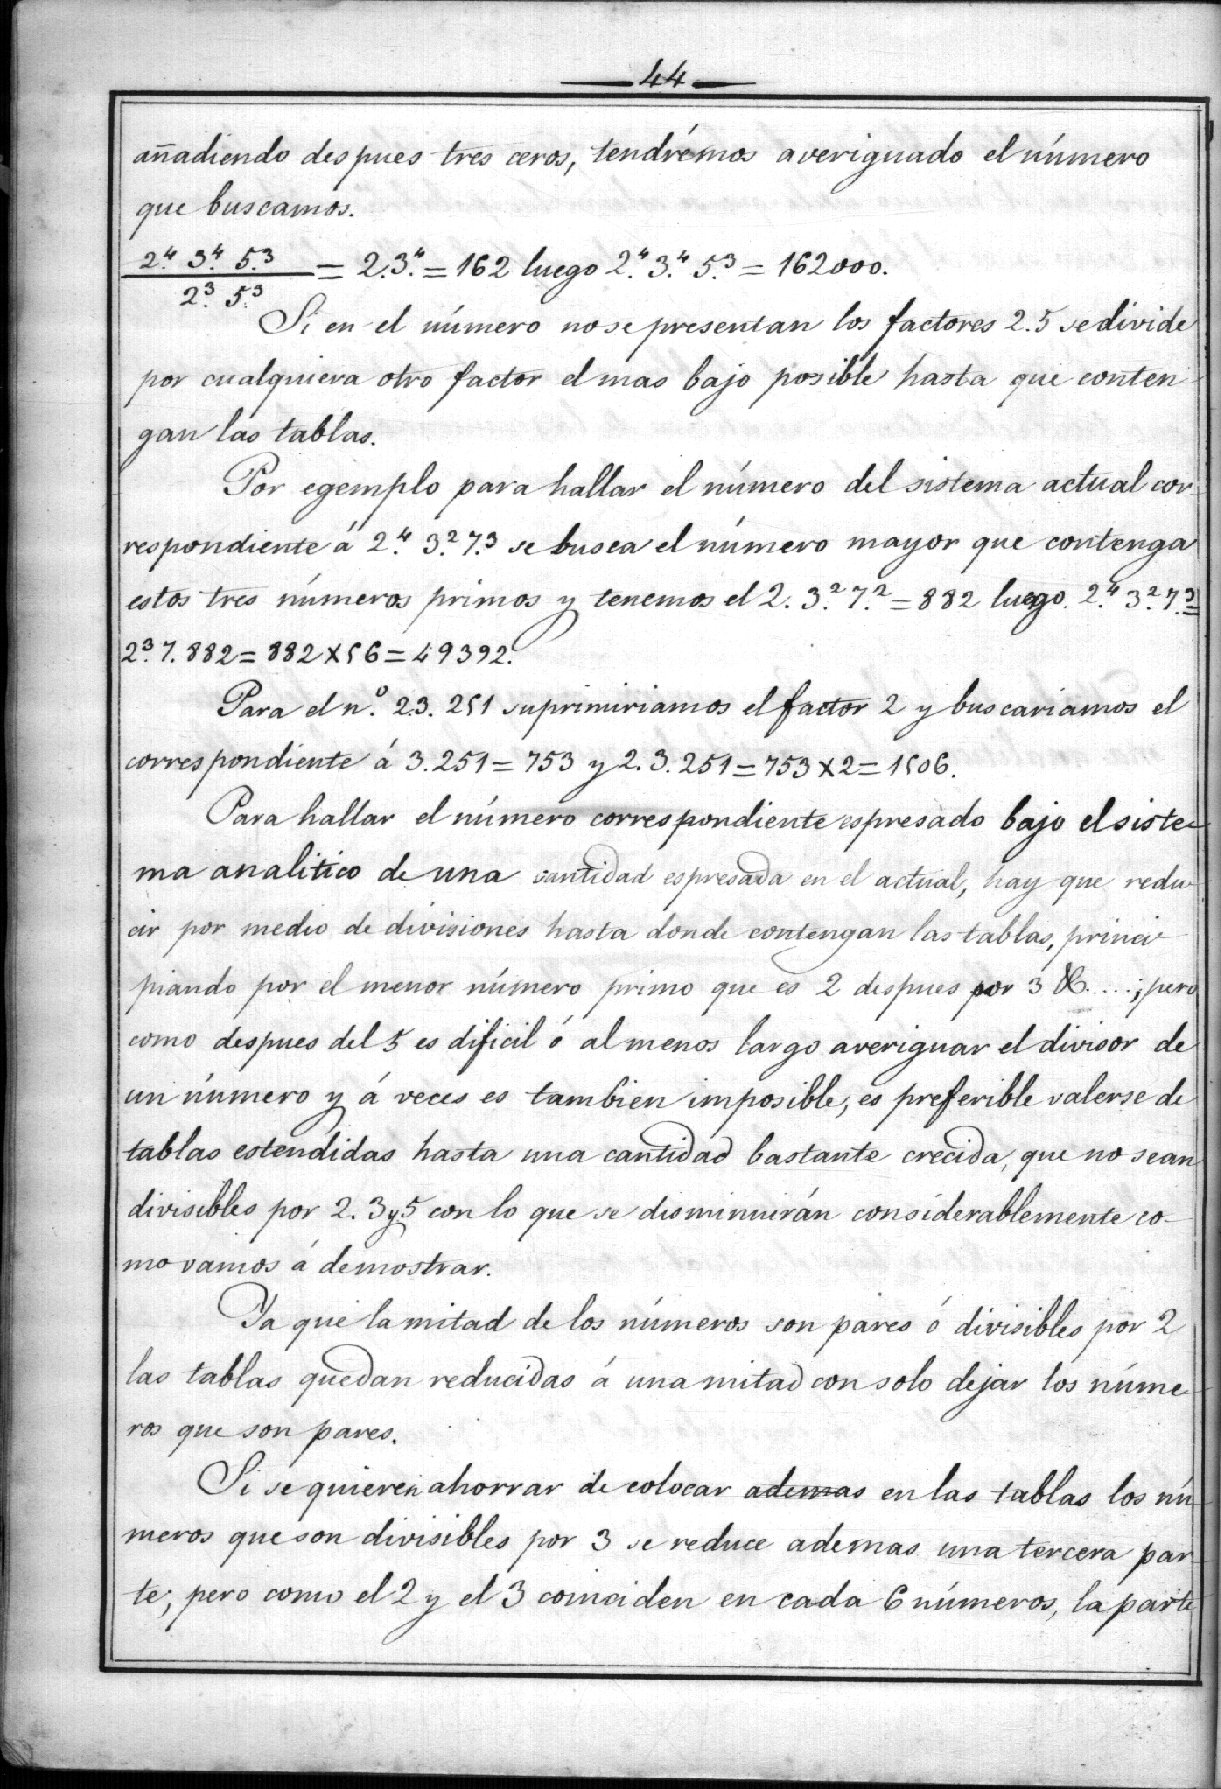 44
añadiendo despues tres ceros, tendrémos averiguado el número
que buscamos.
2.⁴ 3.⁴ 5.³ / 2.³ 5.³ = 2.3.⁴ = 162 luego 2.⁴ 3.⁴ 5.³ = 162000.
Si en el número no se presentan los factores 2.5 se divide
por cualquiera otro factor el mas bajo posible hasta que conten
gan las tablas.
Por egemplo para hallar el número del sistema actual cor
respondiente á 2.⁴ 3.² 7.³ se busca el número mayor que contenga
estos tres números primos y tenemos el 2. 3.² 7.² = 882 luego 2.⁴ 3.² 7.³ =
2.³ 7. 882 = 882 x 56 = 49392.
Para el n.º 2.3. 251 suprimiriamos el factor 2 y buscariamos el
correspondiente á 3. 251 = 753 y 2. 3. 251 = 753 x 2 = 1506.
Para hallar el número correspondiente espresado bajo el siste-
ma analitico de una cantidad espresada en el actual, hay que redu-
cir por medio de divisiones hasta donde contengan las tablas, princi-
piando por el menor número primo que es 2 despues por 3 &. ...; pero
como despues del 5 es dificil ó al menos largo averiguar el divisor de
un número y á veces es tambien imposible, es preferible valerse de
tablas estendidas hasta una cantidad bastante crecida, que no sean
divisibles por 2. 3 y 5 con lo que se disminuirán considerablemente co-
mo vamos á demostrar.
Ya que la mitad de los números son pares ó divisibles por 2
las tablas quedan reducidas á una mitad con solo dejar los núme
ros que son pares.
Si se quieren ahorrar de colocar ademas en las tablas los nú
meros que son divisibles por 3 se reduce ademas una tercera par-
te, pero como el 2 y el 3 coinciden en cada 6 números, la parte